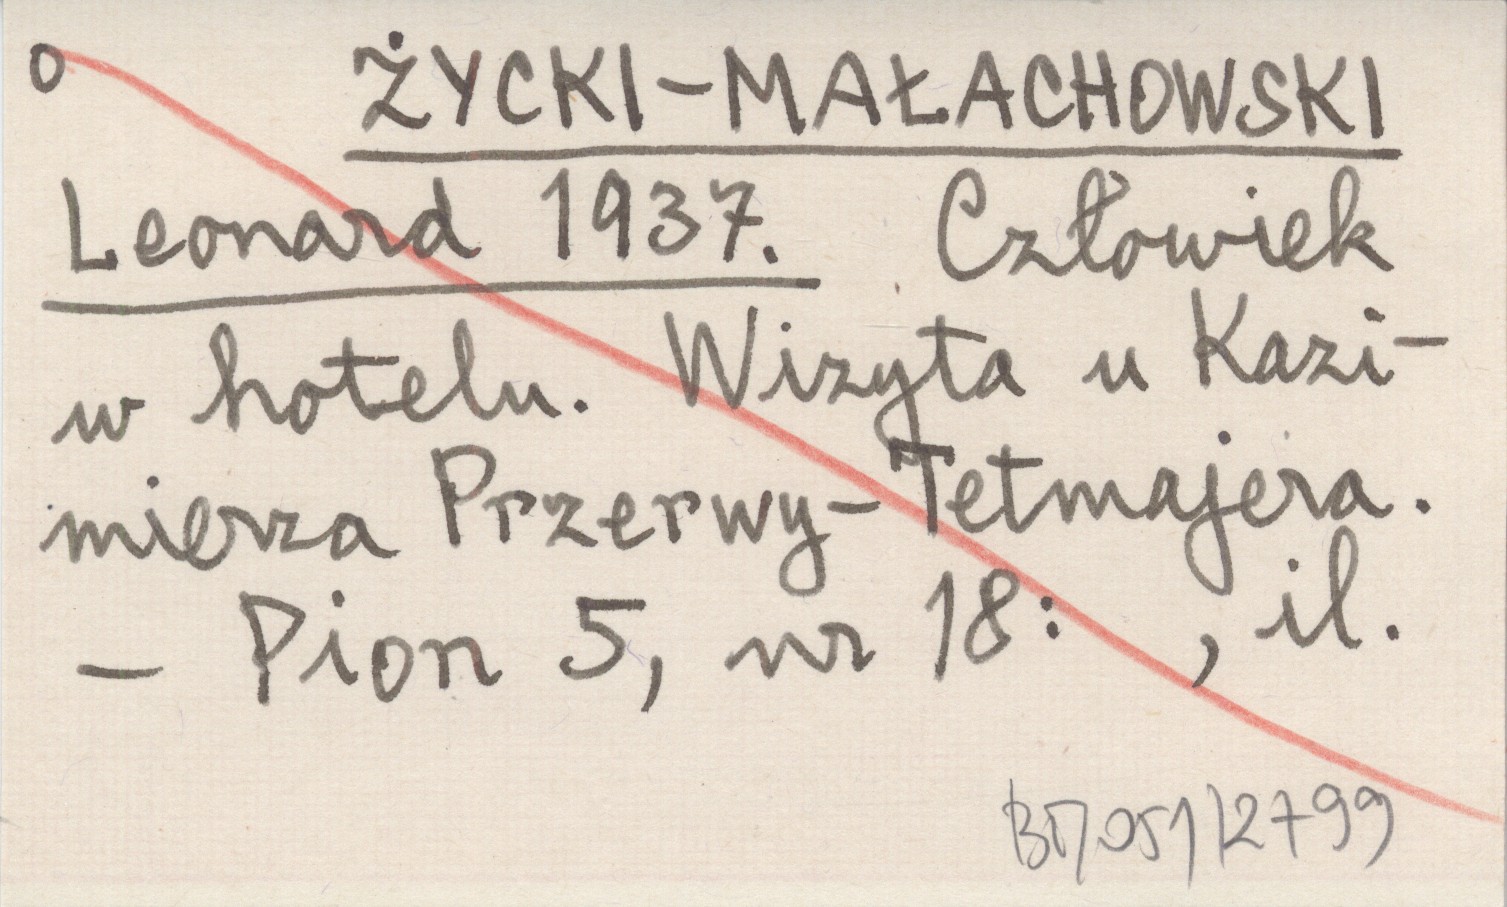 o ŻYCKI-MAŁACHOWSKI
Leonard 1937. Człowiek
w hotelu. Wizyta u Kazi-
mierza Przerwy-Tetmajera.
– Pion 5, nr 18: , il.
12799